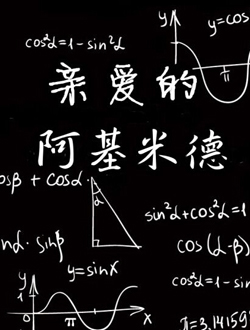 y
y=cos
cos²α=1-sin²α
π
亲爱的
阿基米德
osβ + cosα
α
sin²α+cos²α=1
nα· sinβ
cos(α-β)
y=sinx
cos²α=1-sin
y
1
0
π
x
π=3,14159